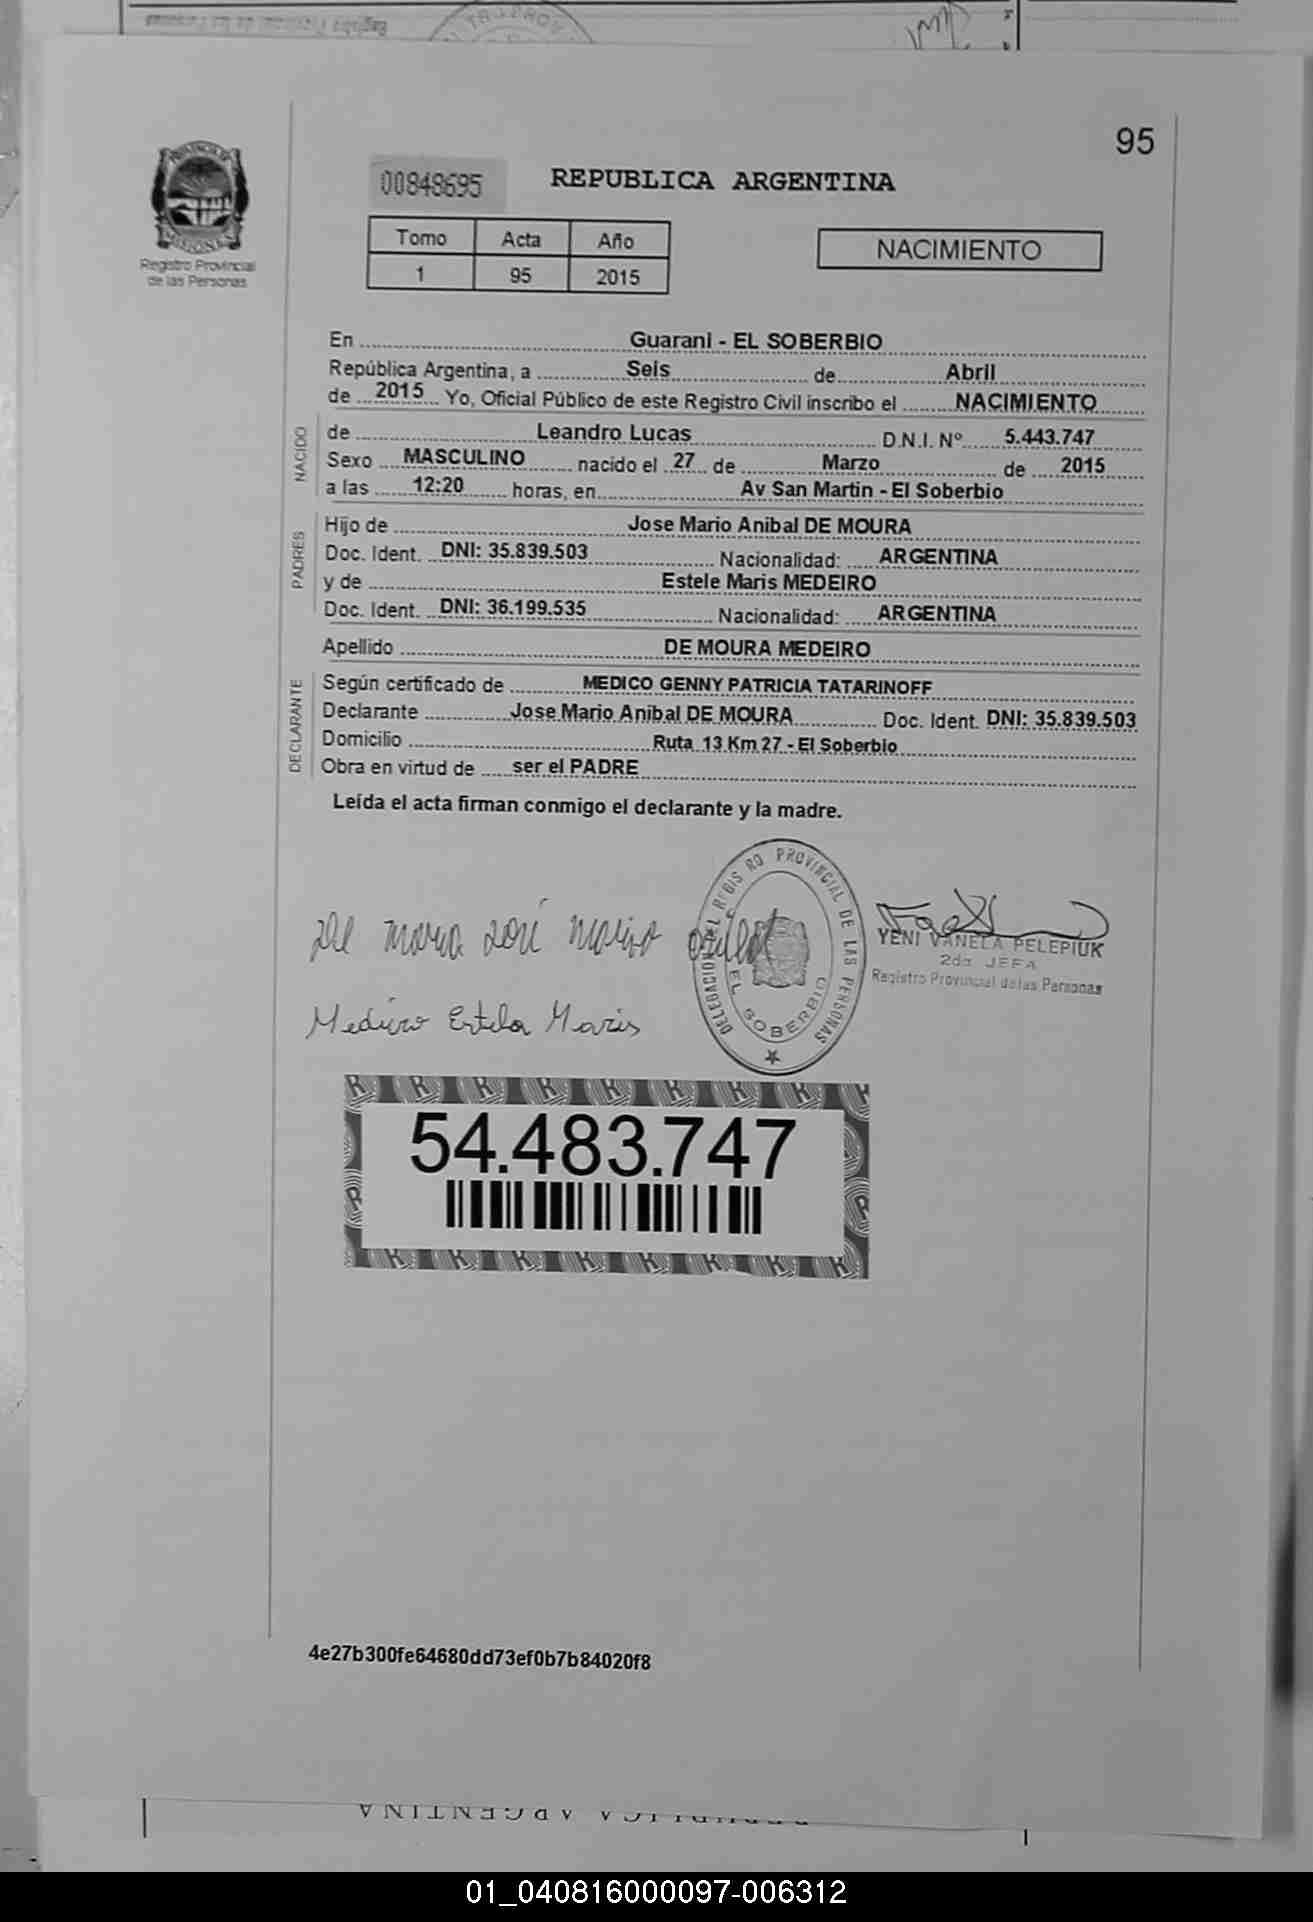 95
00848695
REPUBLICA ARGENTINA
Tomo Acta Año
1 95 2015
NACIMIENTO
MISIONES
Registro Provincial
de las Personas
En Guarani - EL SOBERBIO
República Argentina, a Seis de Abril
de 2015 Yo, Oficial Público de este Registro Civil inscribo el NACIMIENTO
NACIDO
de Leandro Lucas D.N.I. Nº 5.443.747
Sexo MASCULINO nacido el 27 de Marzo de 2015
a las 12:20 horas, en Av San Martin - El Soberbio
PADRES
Hijo de Jose Mario Anibal DE MOURA
Doc. Ident. DNI: 35.839.503 Nacionalidad: ARGENTINA
y de Estele Maris MEDEIRO
Doc. Ident. DNI: 36.199.535 Nacionalidad: ARGENTINA
Apellido DE MOURA MEDEIRO
DECLARANTE
Según certificado de MEDICO GENNY PATRICIA TATARINOFF
Declarante Jose Mario Anibal DE MOURA Doc. Ident. DNI: 35.839.503
Domicilio Ruta 13 Km 27 - El Soberbio
Obra en virtud de ser el PADRE
Leída el acta firman conmigo el declarante y la madre.
DELEGACION DEL REGIS RO PROVINCIAL DE LAS PERSONAS
EL SOBERBIO
YENI VANELA PELEPIUK
2da JEFA
Registro Provincial de las Personas
Medeiro Estela Maris
54.483.747
4e27b300fe64680dd73ef0b7b84020f8
01_040816000097-006312